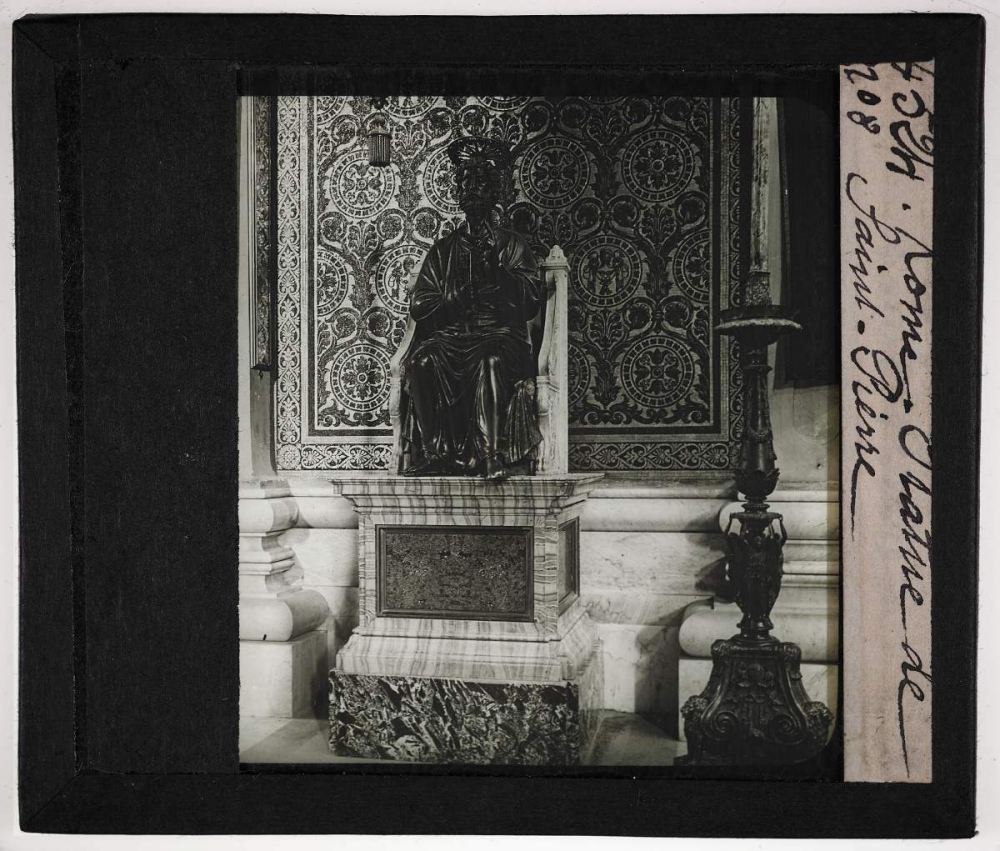 4524. Rome - Statue de
208 Saint-Pierre